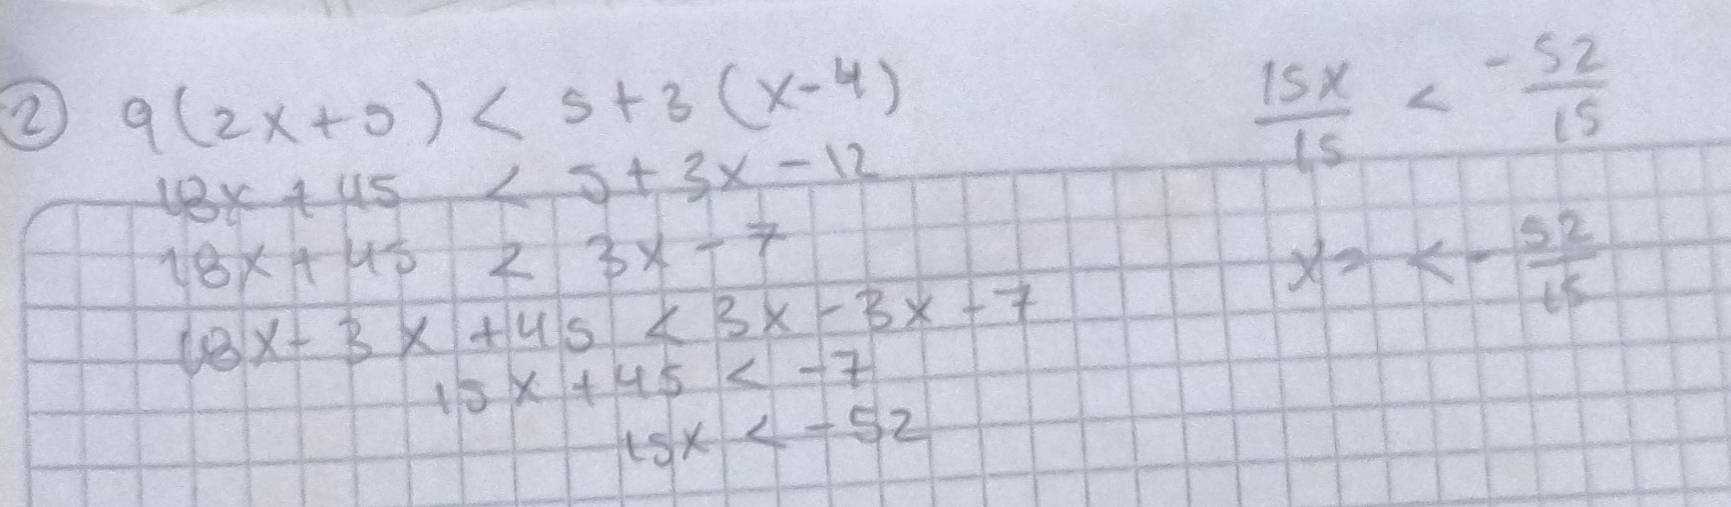 ② 9(2x+5) < 5+3(x-4)
18x + 45 < 5 + 3x - 12
18x + 45 < 3x - 7
18x - 3x + 45 < 3x - 3x - 7
15x + 45 < -7
15x < -52
15x/15 < -52/15
x= < -52/15